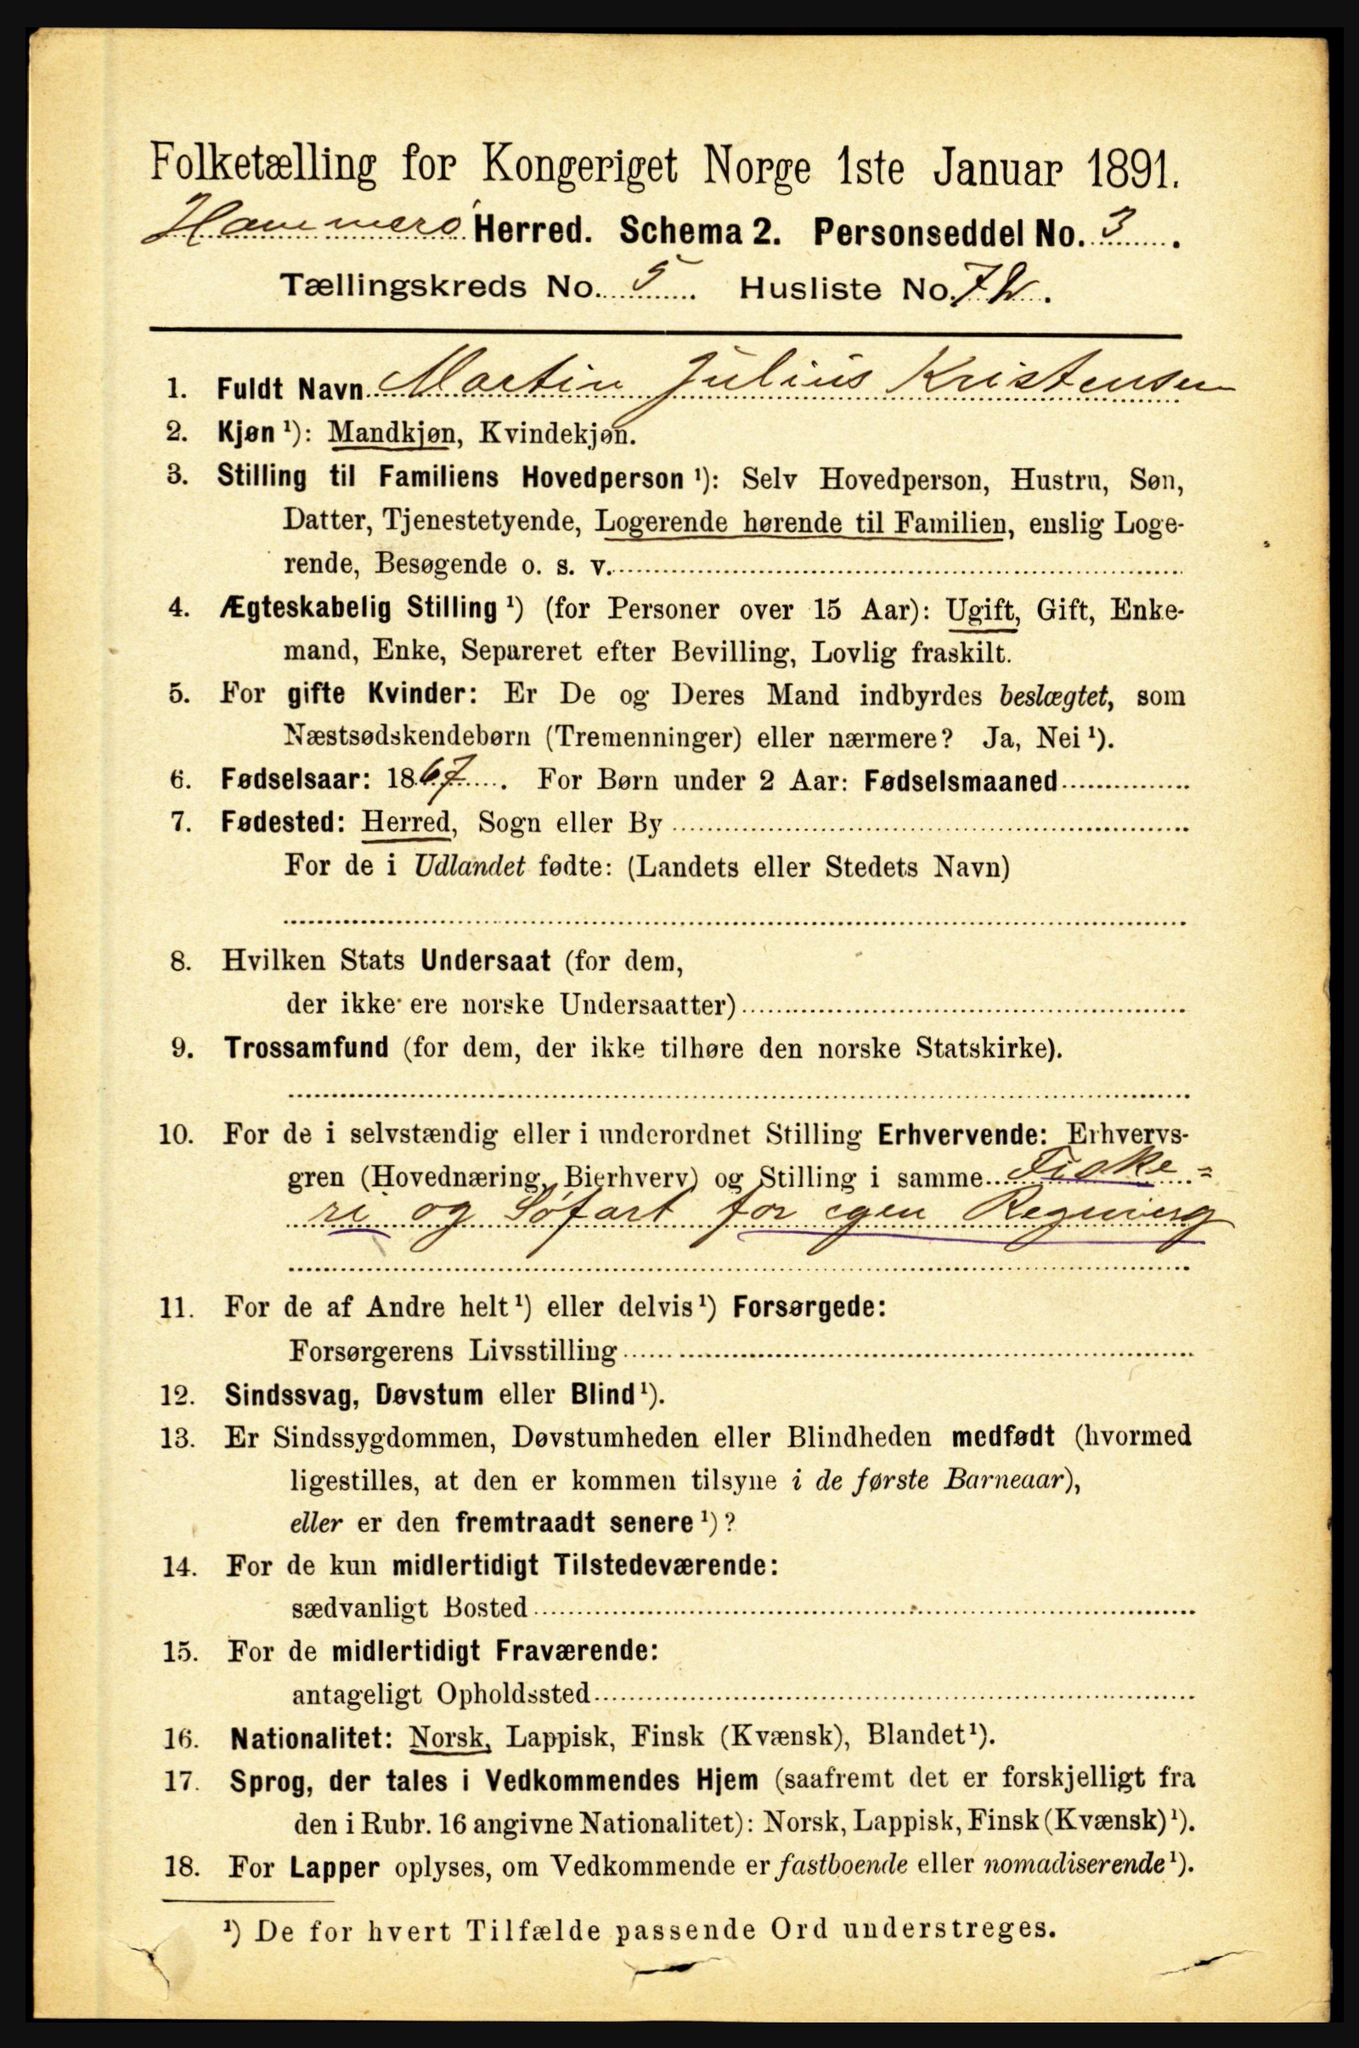 Folketælling for Kongeriget Norge 1ste Januar 1891.
Hammerø Herred. Schema 2. Personseddel No. 3.
Tællingskreds No. 5. Husliste No. 72.
1. Fuldt Navn Martin Julius Kristensen
2. Kjøn ¹): Mandkjøn, Kvindekjøn.
3. Stilling til Familiens Hovedperson ¹): Selv Hovedperson, Hustru, Søn,
Datter, Tjenestetyende, Logerende hørende til Familien, enslig Loge-
rende, Besøgende o. s. v.
4. Ægteskabelig Stilling ¹) (for Personer over 15 Aar): Ugift, Gift, Enke-
mand, Enke, Separeret efter Bevilling, Lovlig fraskilt.
5. For gifte Kvinder: Er De og Deres Mand indbyrdes beslægtet, som
Næstsødskendebørn (Tremenninger) eller nærmere? Ja, Nei ¹).
6. Fødselsaar: 1867. For Børn under 2 Aar: Fødselsmaaned
7. Fødested: Herred, Sogn eller By
For de i Udlandet fødte: (Landets eller Stedets Navn)
8. Hvilken Stats Undersaat (for dem,
der ikke ere norske Undersaatter)
9. Trossamfund (for dem, der ikke tilhøre den norske Statskirke).
10. For de i selvstændig eller i underordnet Stilling Erhvervende: Erhvervs-
gren (Hovednæring, Bierhverv) og Stilling i samme Fiske=
ri og Søfart for egen Regning
11. For de af Andre helt ¹) eller delvis ¹) Forsørgede:
Forsørgerens Livsstilling
12. Sindssvag, Døvstum eller Blind ¹).
13. Er Sindssygdommen, Døvstumheden eller Blindheden medfødt (hvormed
ligestilles, at den er kommen tilsyne i de første Barneaar),
eller er den fremtraadt senere ¹)?
14. For de kun midlertidigt Tilstedeværende:
sædvanligt Bosted
15. For de midlertidigt Fraværende:
antageligt Opholdssted
16. Nationalitet: Norsk, Lappisk, Finsk (Kvænsk), Blandet ¹).
17. Sprog, der tales i Vedkommendes Hjem (saafremt det er forskjelligt fra
den i Rubr. 16 angivne Nationalitet): Norsk, Lappisk, Finsk (Kvænsk) ¹).
18. For Lapper oplyses, om Vedkommende er fastboende eller nomadiserende ¹).
¹) De for hvert Tilfælde passende Ord understreges.